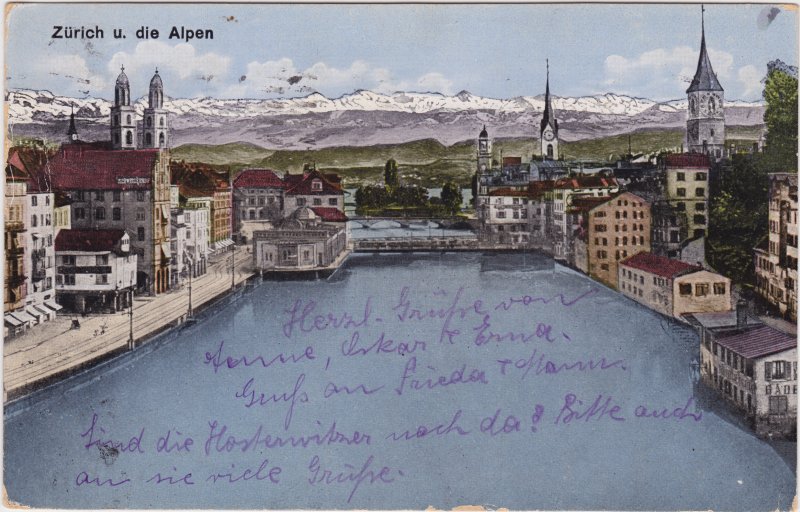 Zürich u. die Alpen
Herzl. Grüße von
Anne, Oskar & Erna.
Gruß an Frieda & Mann.
Sind die Hosterwitzer noch da? Bitte auch
an sie viele Grüße.
BÄDE